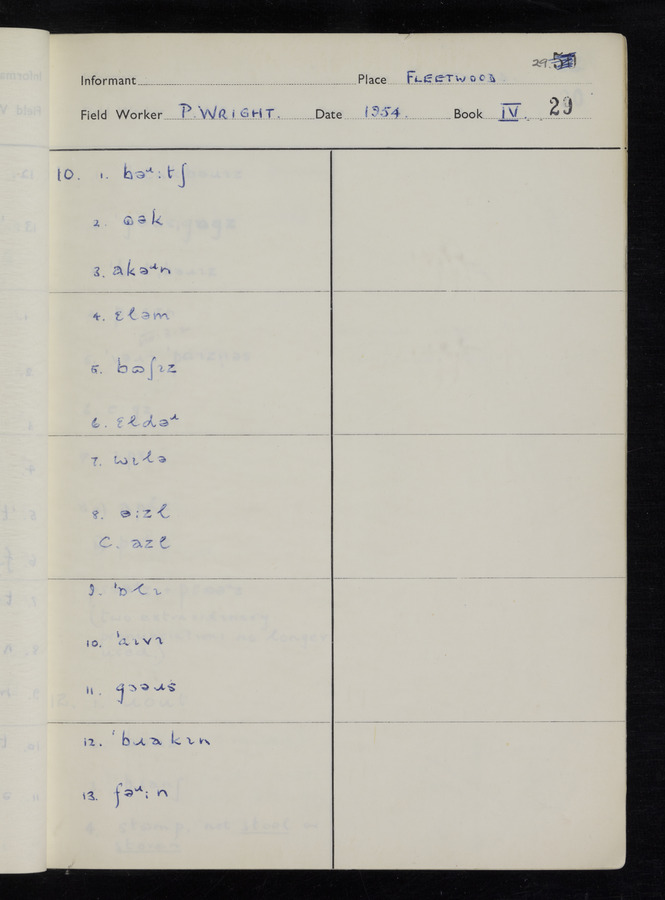 29.
Informant Place FLEETWOOD
Field Worker P. WRIGHT. Date 1954. Book IV. 29
10. 1. bəɹ:tʃ
2. ɷək
3. akəɹn
4. ɛləm
5. bɷʃɪz
6. ɛldəɹ
7. wɪlə
8. ə:zl
C. azl
9. 'ɒlɪ
10. 'aɪvɪ
11. gɔəɹs
12. 'bɹakɪn
13. fəɹ:n